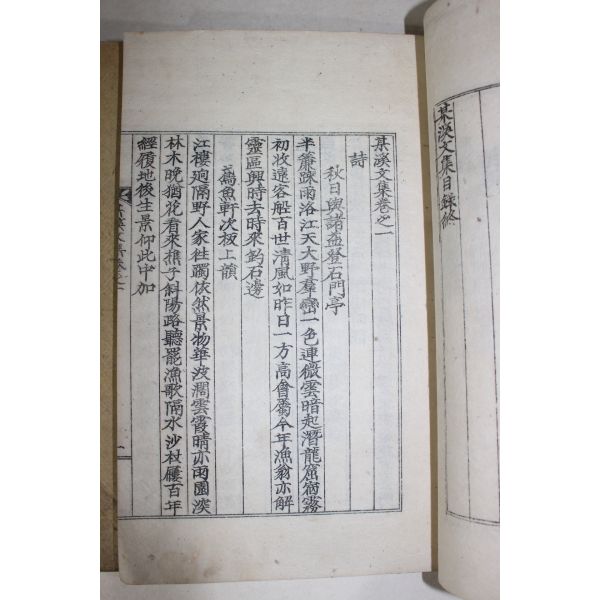 某溪文集目錄終
某溪文集卷之一
詩
秋日與諸益登石門亭
半簾疎雨洛江天大野羣巒一色連微雲暗起潛龍窟宿霧
初收遠客船百世清風如昨日一方高會屬今年漁翁亦解
靈區興時去時來釣石邊
魚軒次板上韻
江樓逈隔野人家徃躅依然景物華波濶雲霞晴亦雨園深
林木晩猶花看來樵子斜陽路聽罷漁歌隔水沙杖屨百年
經履地後生景仰此中加